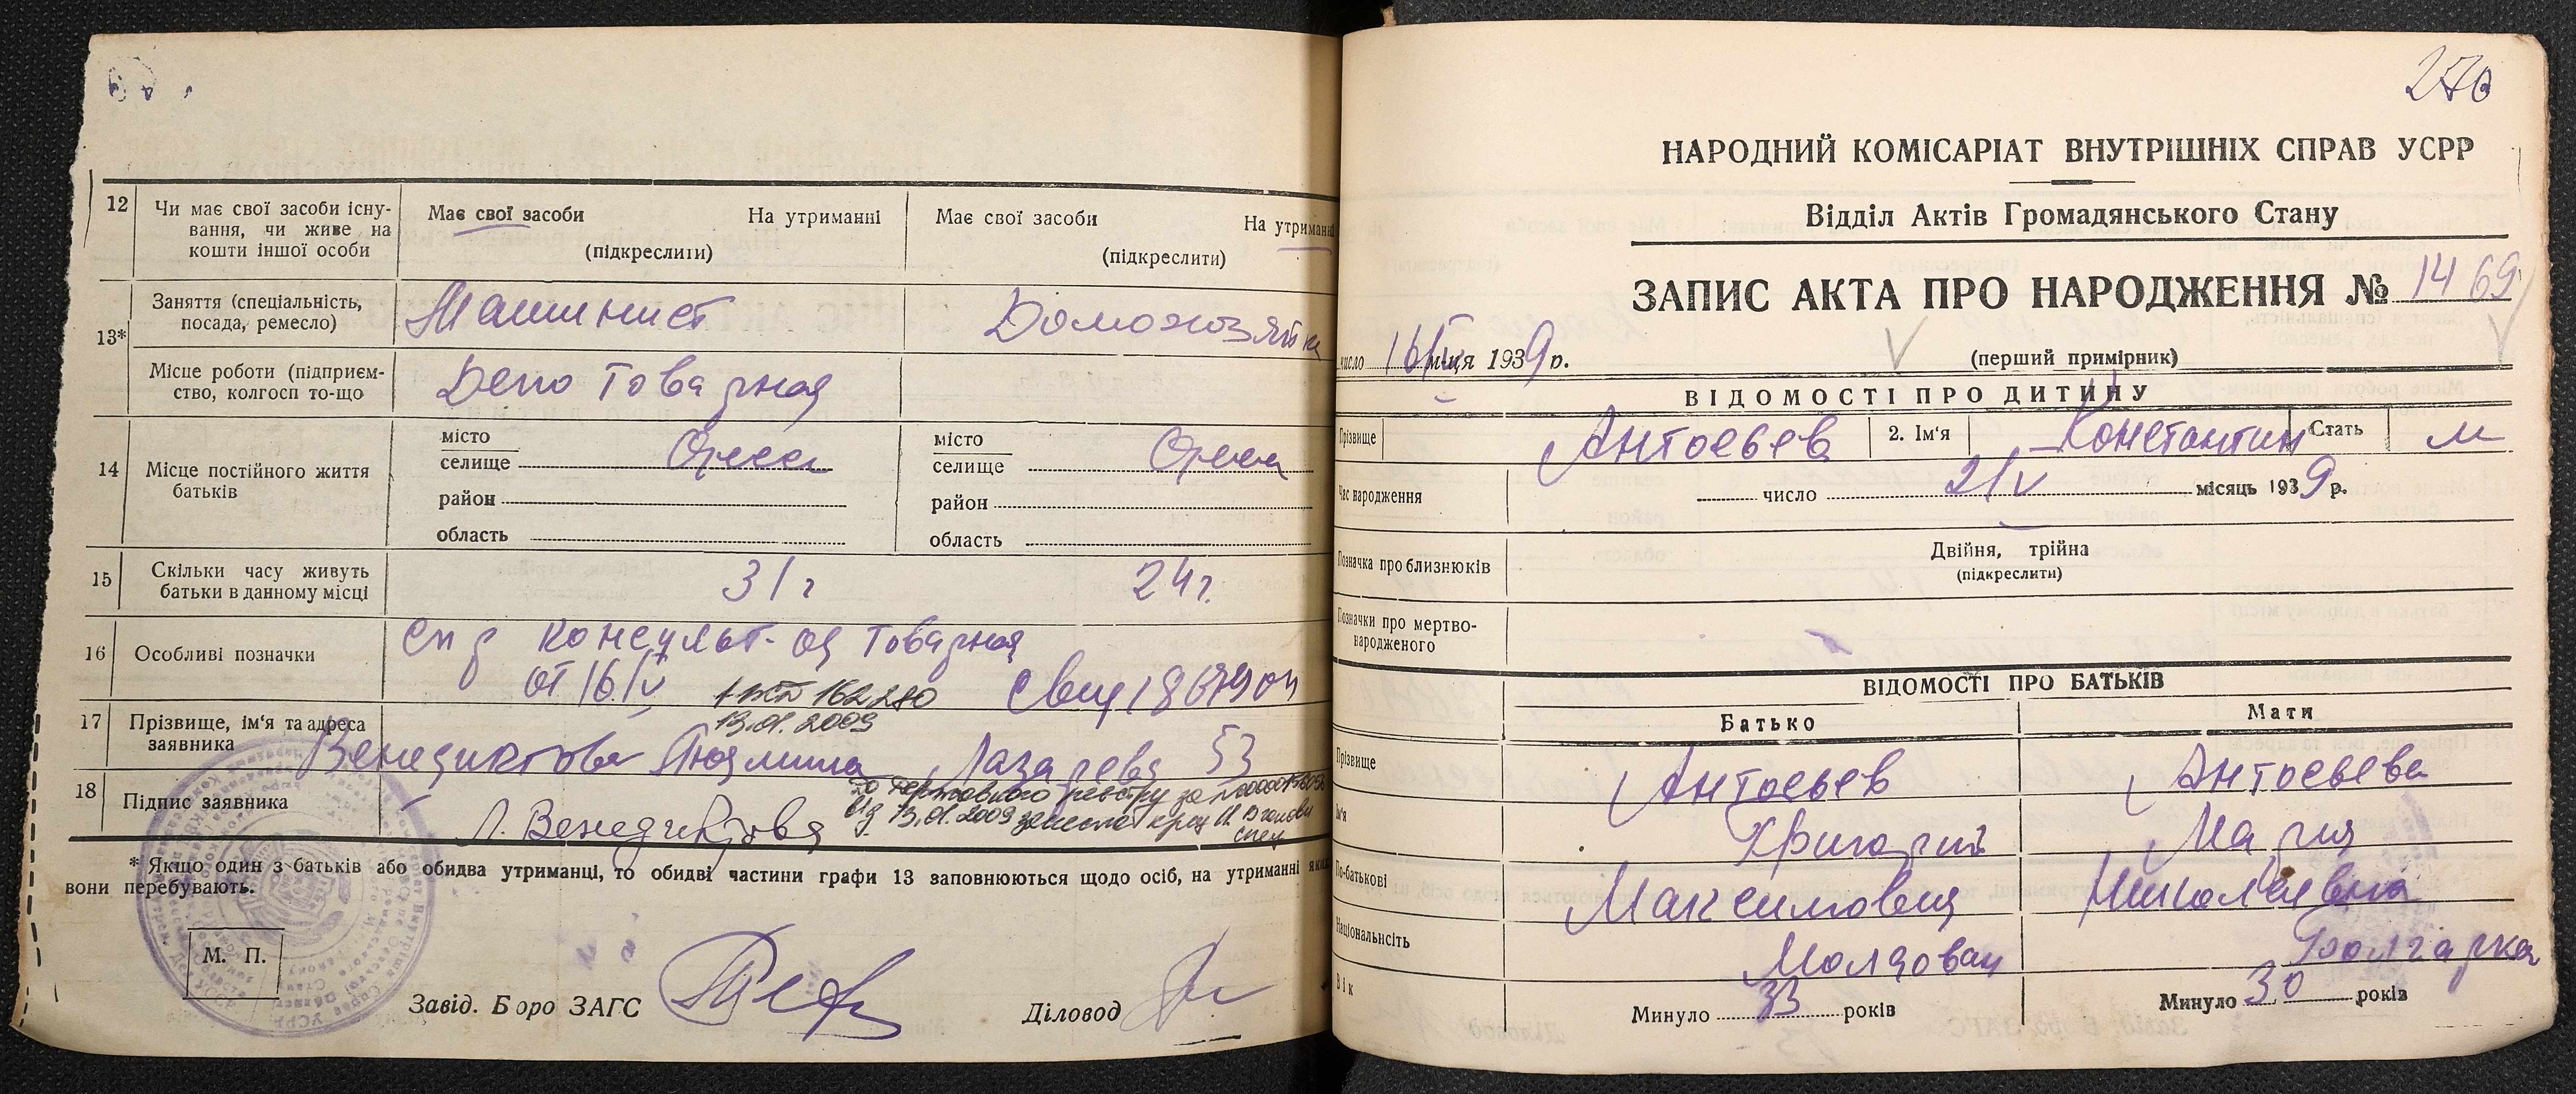 12
Чи має свої засоби існу-
вання, чи живе на
кошти іншої особи
Має свої засоби На утриманні
(підкреслити)
Має свої засоби На утриманні
(підкреслити)
13*
Заняття (спеціальність,
посада, ремесло)
Машинист
Домохозяйка
Місце роботи (підприєм-
ство, колгосп то-що
Депо Товарная
14
Місце постійного життя
батьків
місто
селище Одесса
район
область
місто
селище Одесса
район
область
15
Скільки часу живуть
батьки в данному місці
31 г
24 г.
16
Особливі позначки
спр консульт-ия Товарная
от 16/V
162280
13.01.2009
17
Прізвище, ім'я та адреса
заявника
Венедиктова Людмила Лазарева 53
18
Підпис заявника
Л. Венедиктова
від 13.01.2009
* Якщо один з батьків або обидва утриманці, то обидві частини графи 13 заповнюються щодо осіб, на утриманні яких
вони перебувають.
М. П.
Завід. Бюро ЗАГС
Діловод
270
НАРОДНИЙ КОМІСАРІАТ ВНУТРІШНІХ СПРАВ УСРР
Відділ Актів Громадянського Стану
ЗАПИС АКТА ПРО НАРОДЖЕННЯ № 1469
число 16/V м-ця 1939 р.
(перший примірник)
ВІДОМОСТІ ПРО ДИТИНУ
Прізвище Антосьев 2. Ім'я Константин Стать м
Час народження число 2/V місяць 1939 р.
Позначка про близнюків
Двійня, трійна
(підкреслити)
Позначки про мертво-
народженого
ВІДОМОСТІ ПРО БАТЬКІВ
Батько Мати
Прізвище Антосьев Антосьева
Ім'я Григорий Мария
По-батькові Максимович Николаевна
Національність Молдован Болгарка
Вік Минуло 33 років Минуло 30 років